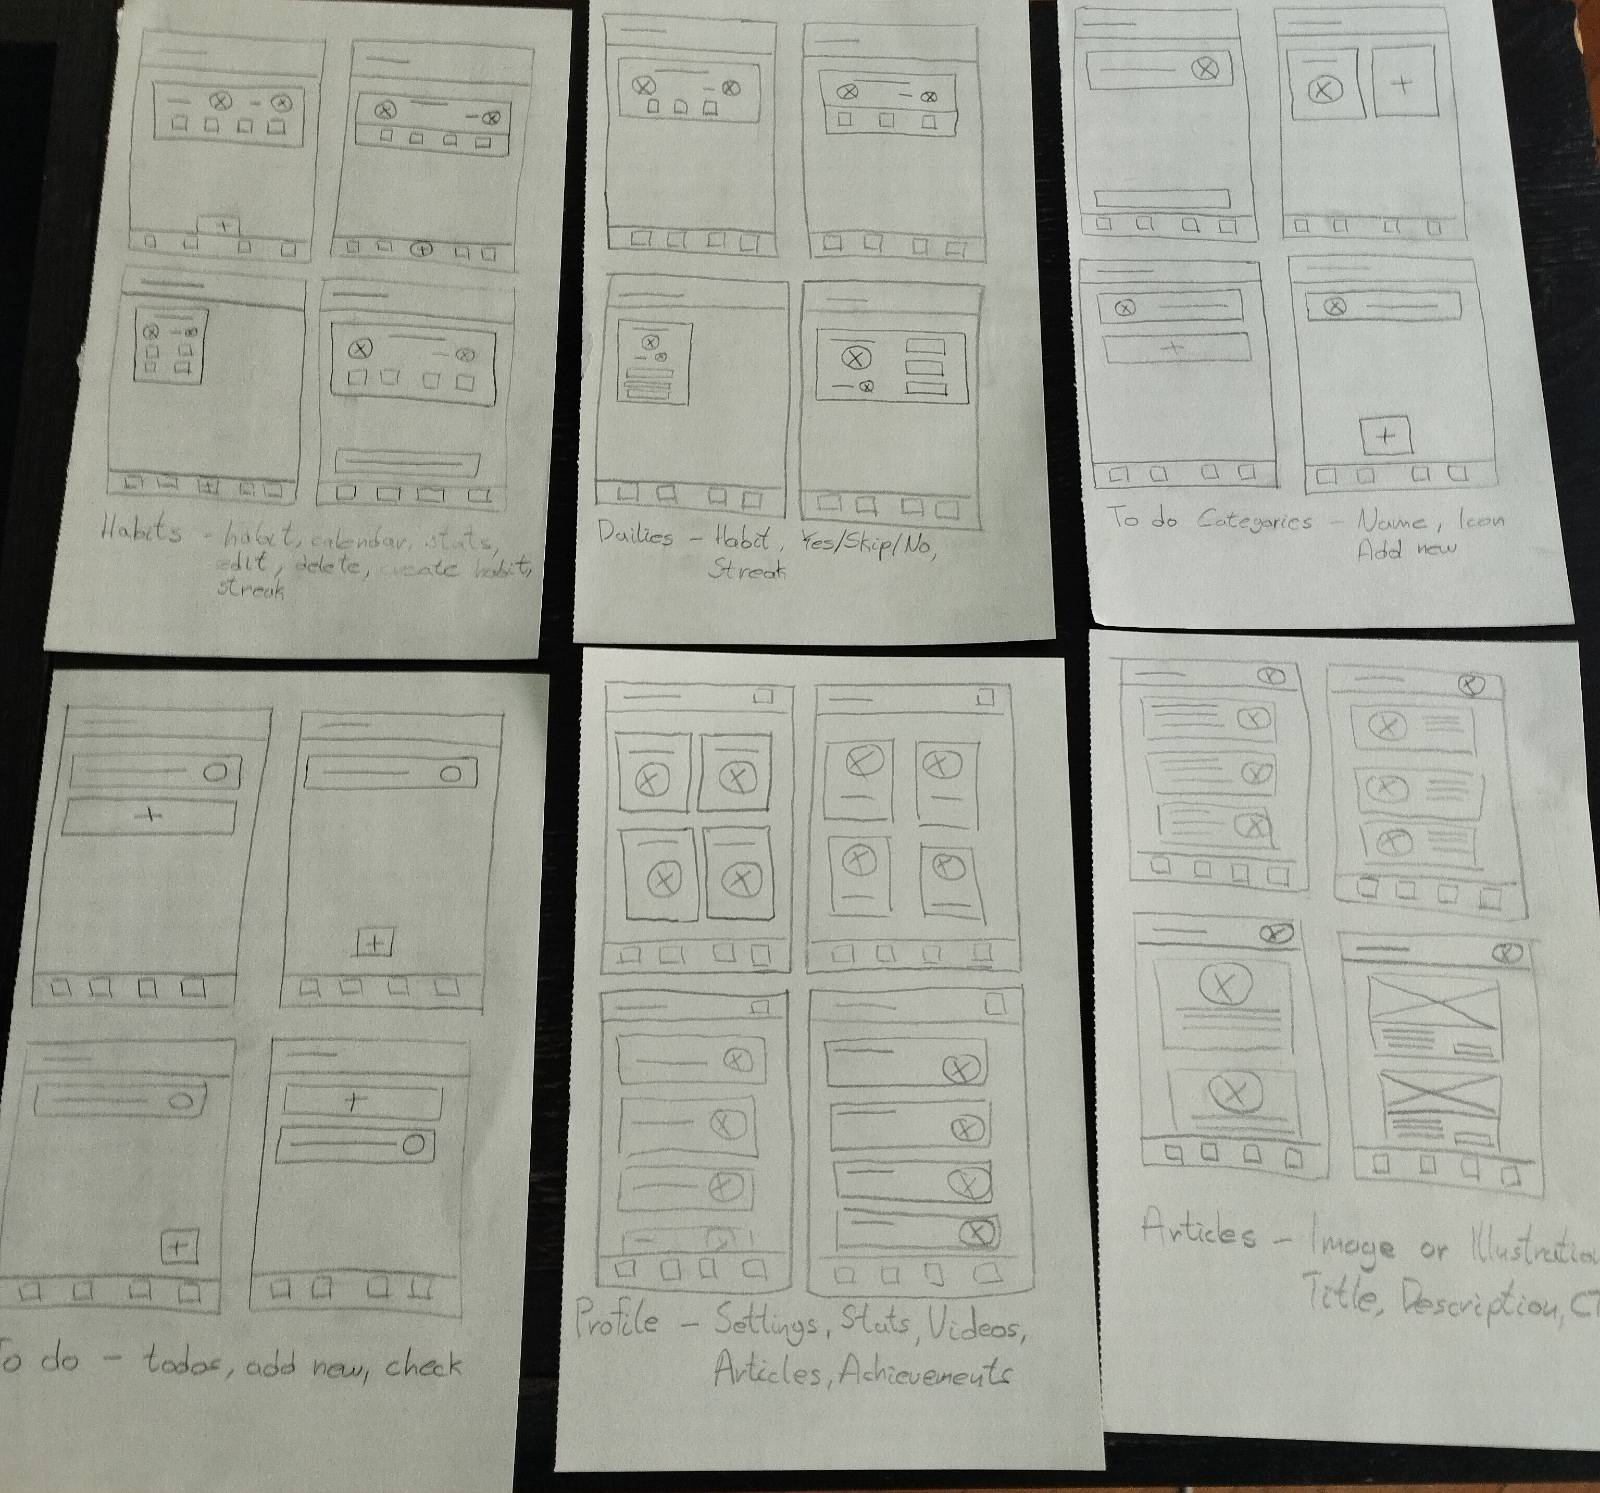 Habits - habit, calendar, stats,
edit, delete, create habit,
streak
Dailies - Habit, Yes/Skip/No,
Streak
To do Categories - Name, Icon
Add new
To do - todos, add new, check
Profile - Settings, Stats, Videos,
Articles, Achievements
Articles - Image or Illustration
Title, Description, CT